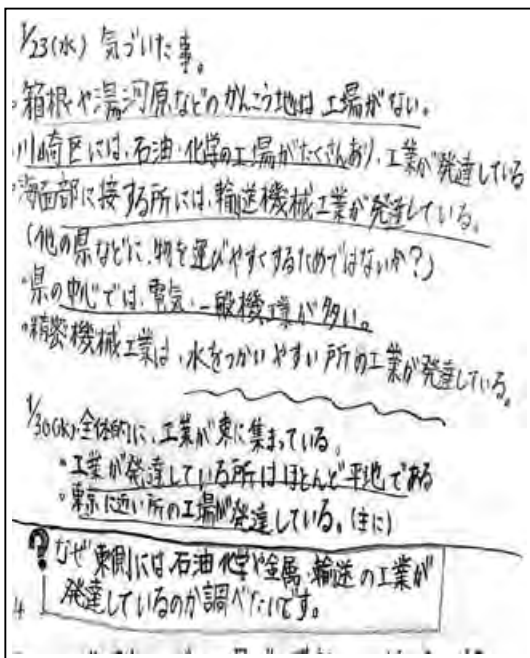 1/23(水) 気づいた事。
・箱根や湯河原などのかんこう地は工場がない。
・川崎区には、石油・化学の工場がたくさんあり、工業が発達している
・海面部に接する所には、輸送機械工業が発達している。
(他の県などに、物を運びやすくするためではないか?)
・県の中心では、電気・一般機工業が多い。
・精密機械工業は、水をつかいやすい所の工業が発達している。
1/30(水)・全体的に、工業が東に集まっている。
・工業が発達している所はほとんど平地である
・東京に近い所の工場が発達している。(主に)
? なぜ東側には石油化学や金属・輸送の工業が
発達しているのか調べたいです。
4